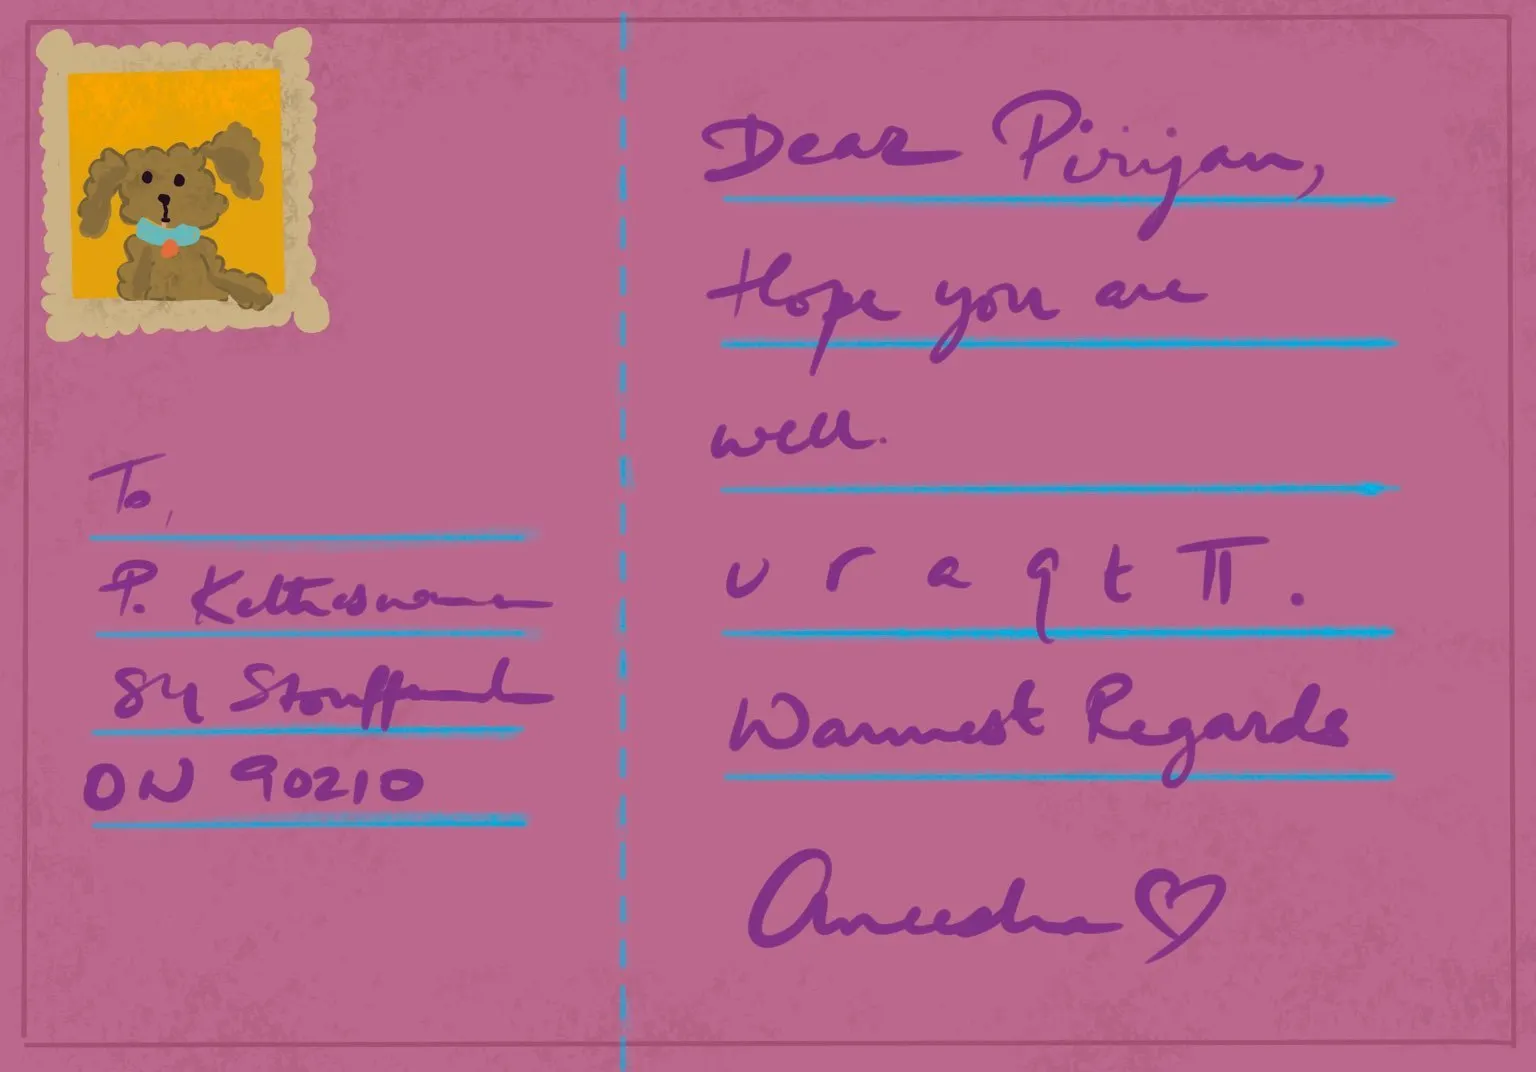 To,
P. Ketheswaran
84 Stouffand
ON 90210
Dear Pirijan,
Hope you are
well.
u r a q t π.
Warmest Regards
Aneesha